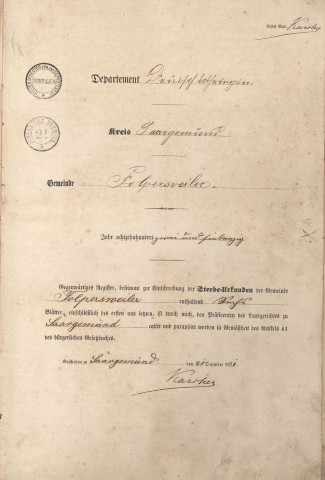 Karcher
Departement Deutsch Lothringen.
Kreis Saargemünd
Gemeinde Folpersweiler.
Jahr achtzehnhundert zwei und siebenzig
Gegenwärtiges Register, bestimmt zur Einschreibung der Sterbe-Urkunden der Gemeinde
Folpersweiler enthaltend sechs
Blätter, einschließlich des ersten und letzten, ist durch mich, den Präsidenten des Landgerichtes zu
Saargemünd cotirt und paraphirt worden in Gemäßheit des Artikels 41
des bürgerlichen Gesetzbuches.
Geschehen zu Saargemünd den Dezember 1871.
Karcher